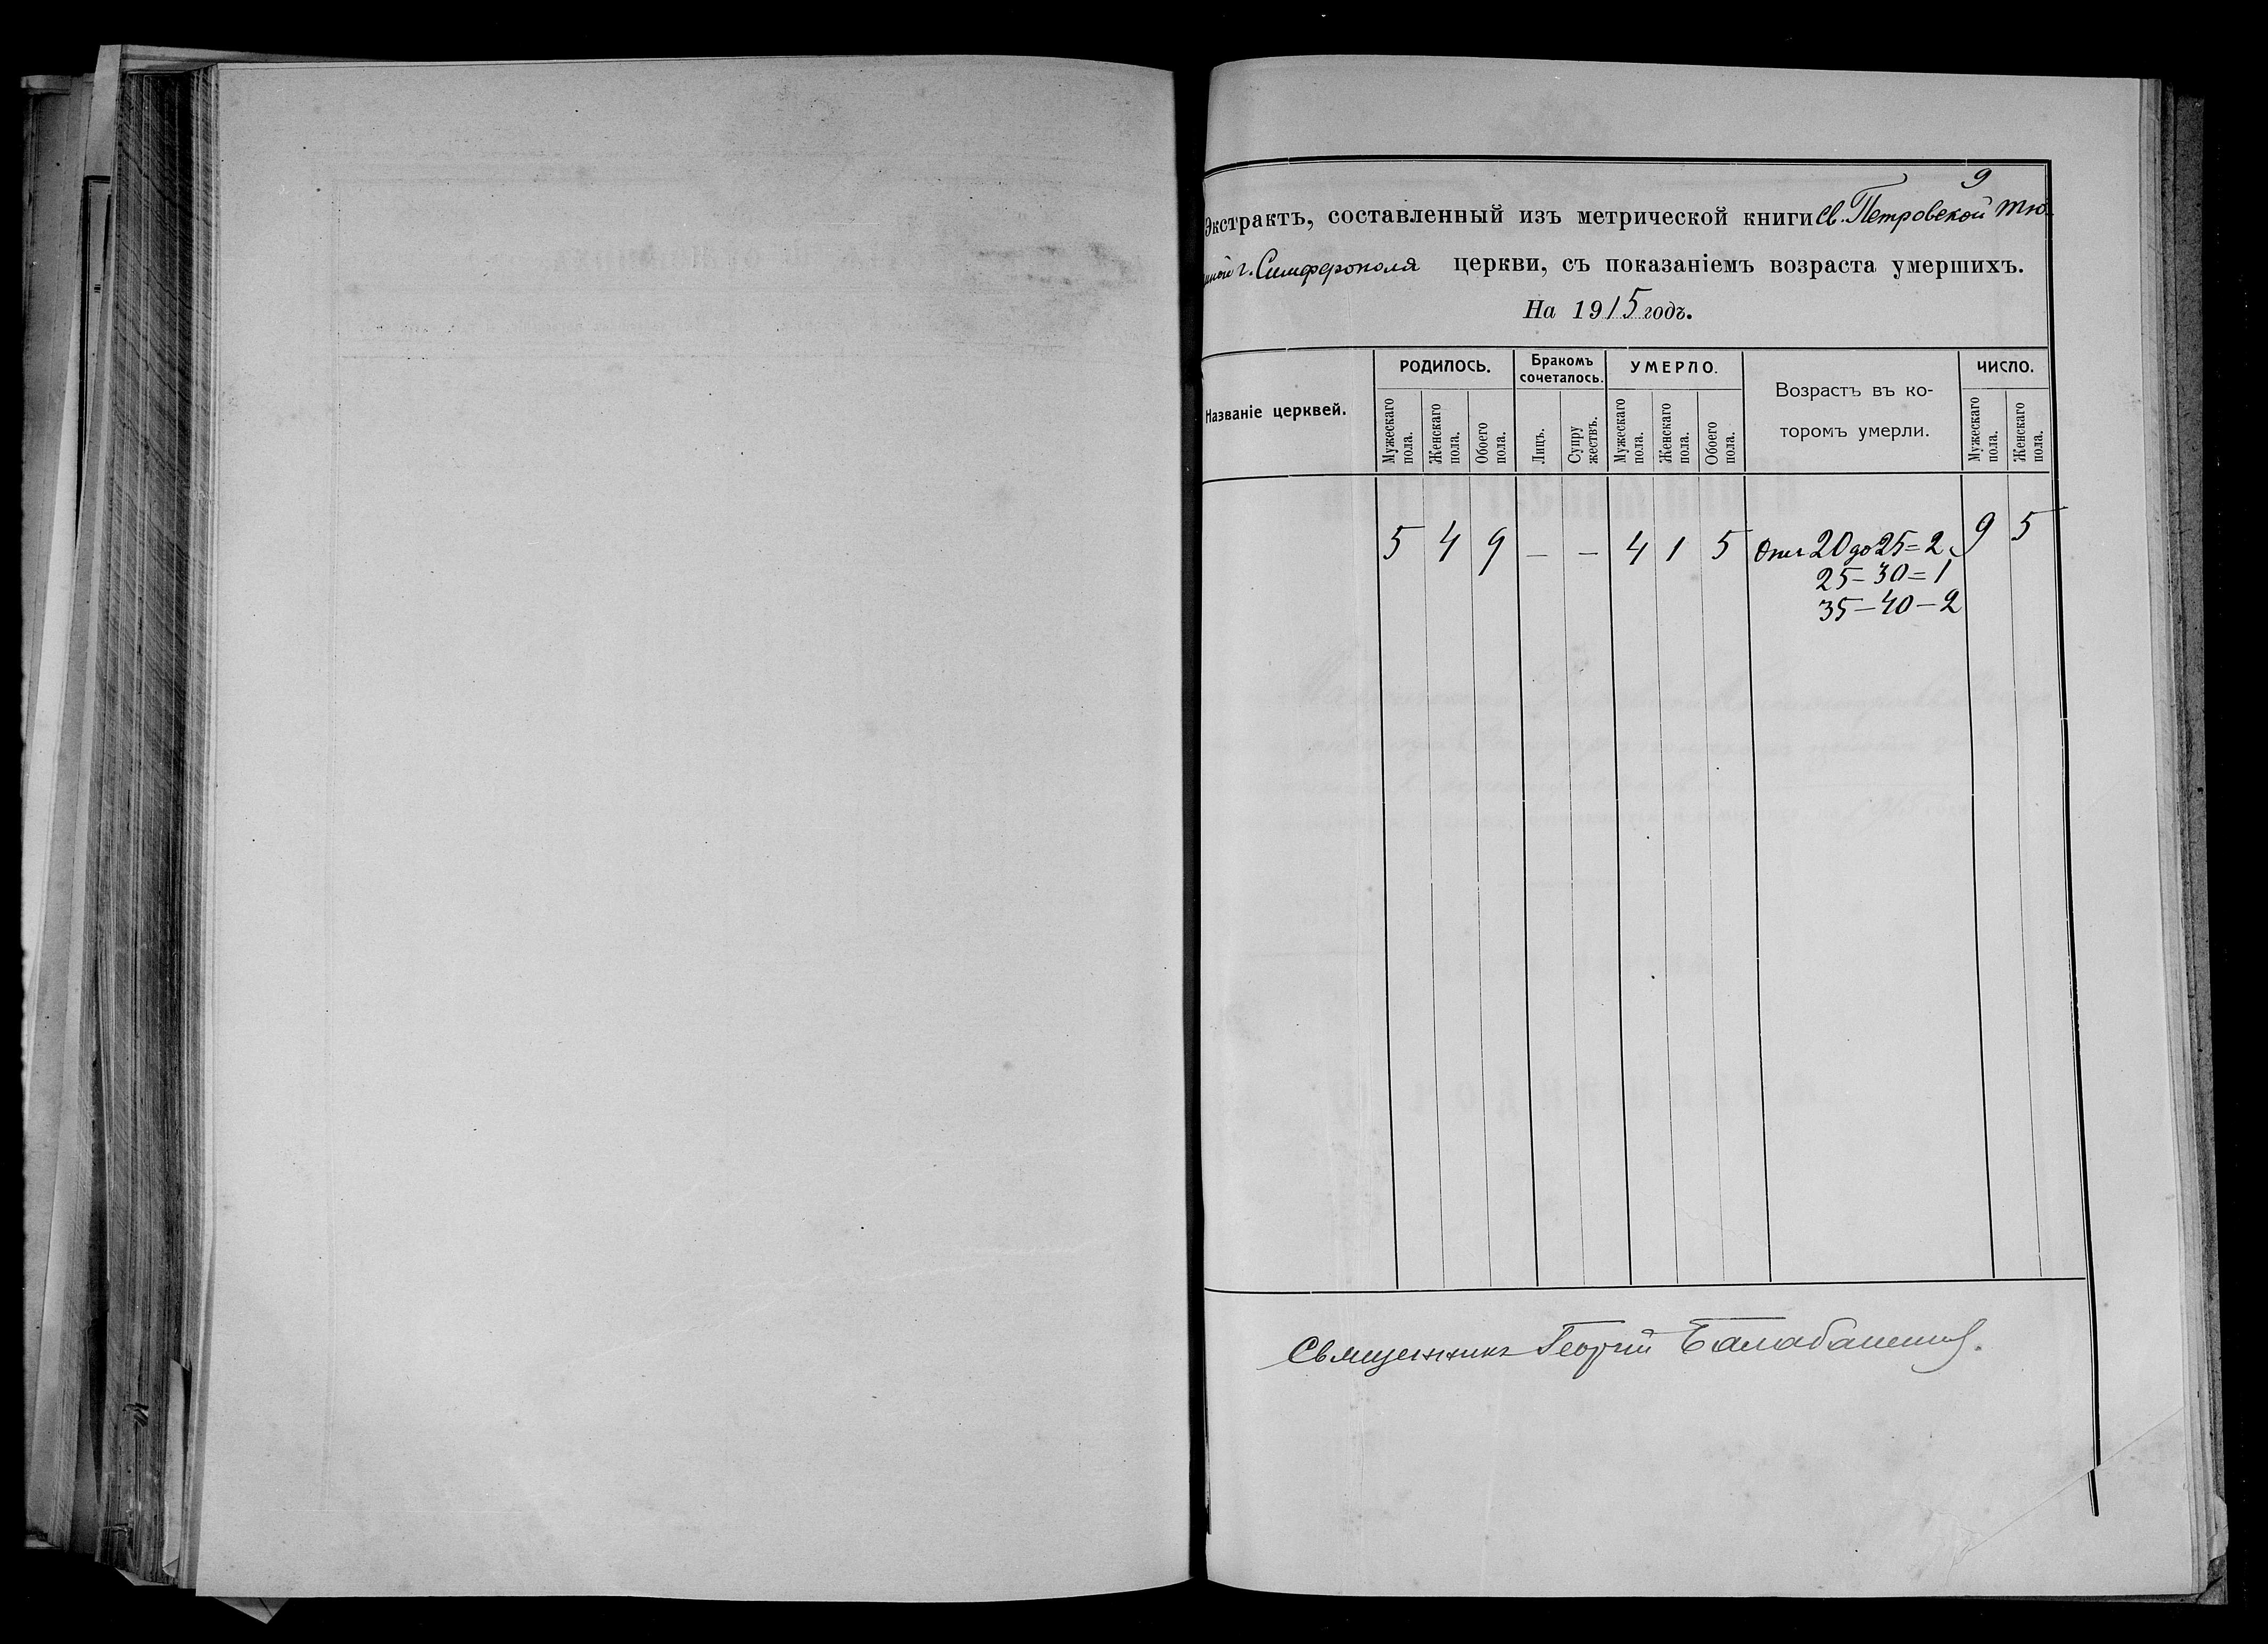 9
Экстрактъ, составленный изъ метрической книги Св. Петровской тю-
ремной г. Симферополя церкви, съ показаніемъ возраста умершихъ.
На 1915 годъ.
Названіе церквей.
РОДИЛОСЬ.
Бракомъ сочеталось.
УМЕРЛО.
Возрастъ въ ко-
торомъ умерли.
ЧИСЛО.
Мужескаго пола.
Женскаго пола.
Обоего пола.
Лицъ.
Супру жествъ.
Мужескаго пола.
Женскаго пола.
Обоего пола.
Мужескаго пола.
Женскаго пола.
5 4 9 — — 4 1 5 От 20 до 25=2 9 5
25-30=1
35-40-2
Священникъ Георгій